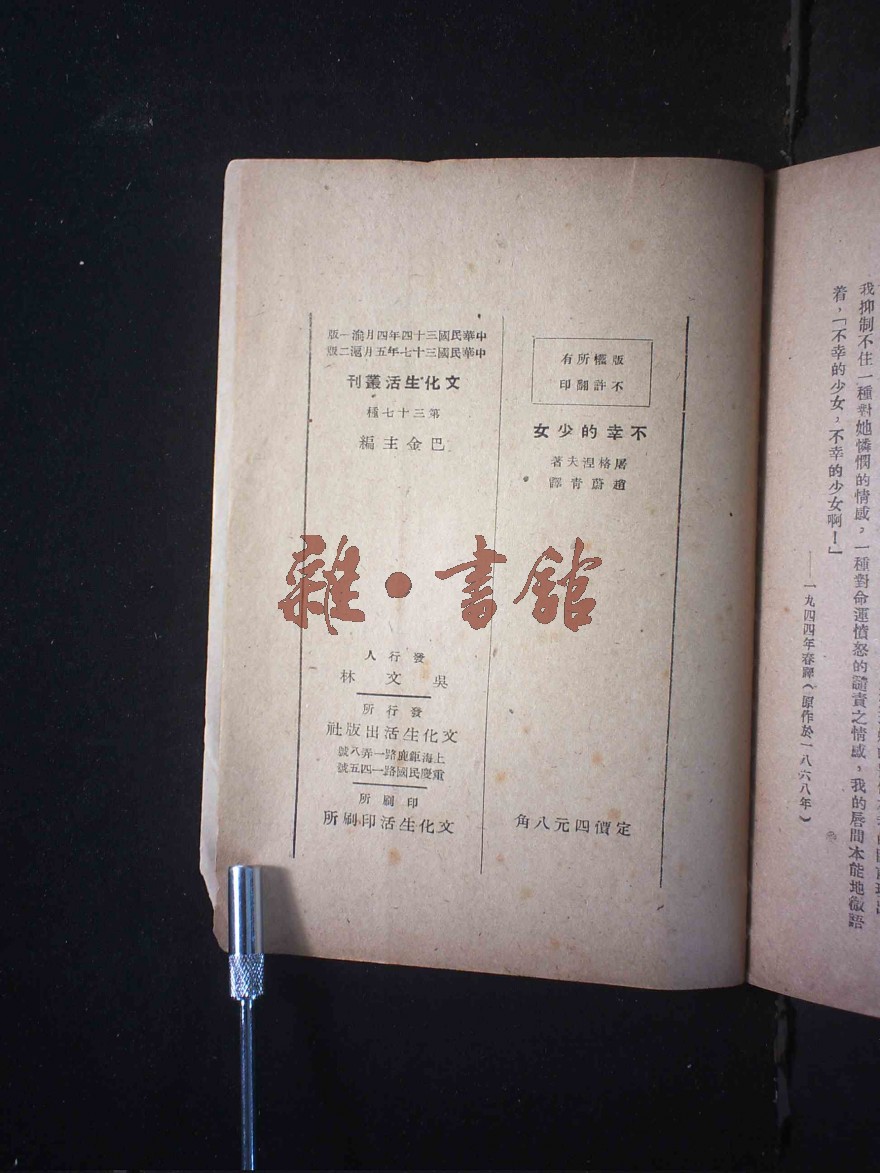 我抑制不住一種對她憐憫的情感，一種對命運憤怒的譴責之情感，我的唇間本能地微語
着，「不幸的少女，不幸的少女啊！」
——一九四四年春譯（原作於一八六八年）
版權所有
不許翻印
不幸的少女
屠格涅夫著
趙蔚青譯
定價四元八角
中華民國三十四年四月渝一版
中華民國三十七年五月滬二版
文化生活叢刊
第三十七種
巴金主編
發行人
吳文林
發行所
文化生活出版社
上海鉅鹿路一弄八號
重慶民國路一四五號
印刷所
文化生活印刷所
雜·書館